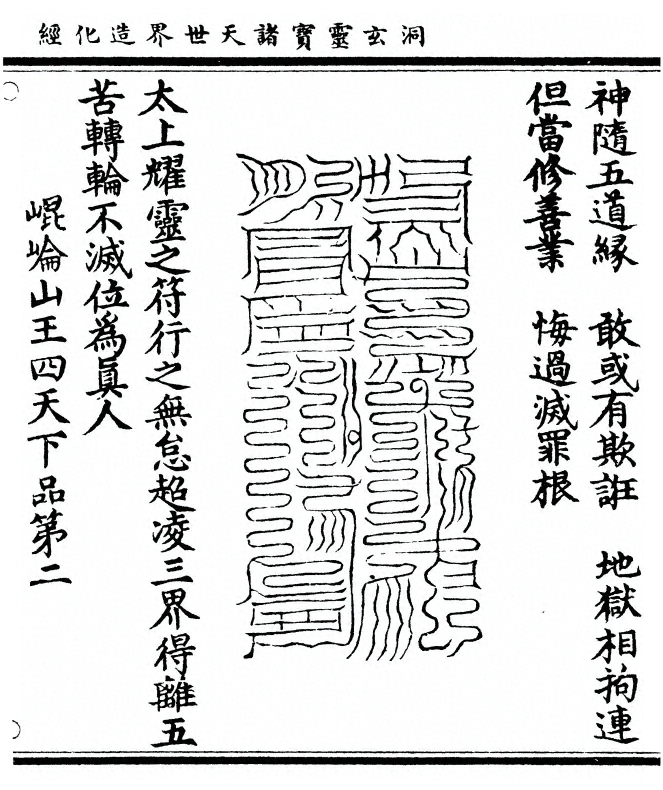 洞玄靈寶諸天世界造化經
神隨五道緣　敢或有欺誑　地獄相拘連
但當修善業　悔過滅罪根
太上耀靈之符行之無怠超凌三界得離五
苦轉輪不滅位為眞人
崐崘山王四天下品第二